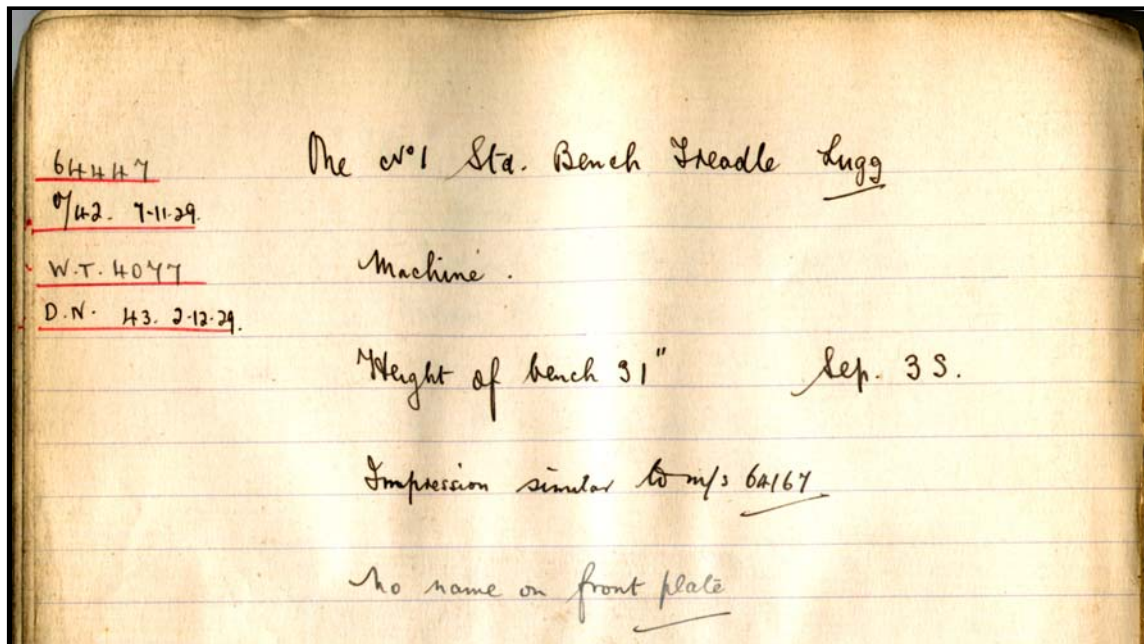 64447
O/42. 7-11-29.
W.T. 4077
D.N. 43. 2-12-29.
One No 1 Std. Bench Treadle Lugg
Machine.
Height of bench 31" Sep. 3 S.
Impression similar to m/s 64167
No name on front plate